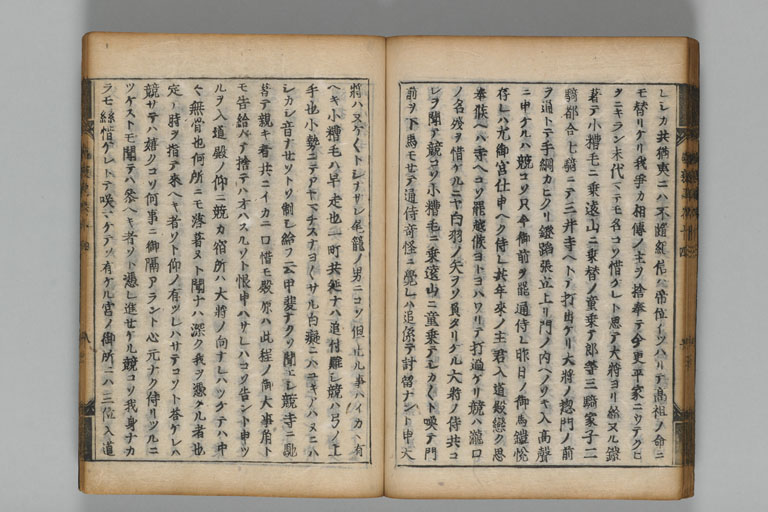 レシカ共猶夷ニハ不隨紀信ハ帝位ヲイツハリテ高祖ノ命ニ
モ替リケリ我爭カ相傳ノ主ヲ捨奉テ今更平家ニウテクヒ
タニキラン末代マテモ名コソ惜ケレト思テ大將ヨリ給ヌル鎧
著テ小糟毛ニ乘遠山ニ乘替ノ童乘テ郎等三騎家子二
騎都合七騎ニテ三井寺ヘトテ打出ケリ大將ノ惣門ノ前
ヲ通トテ手綱カヒクリ鐙蹈張立上リ門ノ内ヘノソキ入高聲
ニ申ケルハ競コソ只今御前ヲ罷通侍レ昨日ノ御馬鎧悅
存レハ尤御宮仕申ヘク侍レ共年來ノ主君入道殿戀ク思
奉候ヘハ寺ヘコソ罷越候ヨトヨハワリテ打過ケリ競ハ瀧口
ノ名殘ヲ惜ケルニヤ白羽ノ矢ヲソ負タリケル大將ノ侍共コ
レヲ聞アレ競コソ小糟毛ニ乘遠山ニ童乘テシカ〱ト喚テ門
前ヲ下馬モセテ通侍奇怪ニ覺レハ追係テ討留ナント申大
將ハ又ケ〱トシナサレ尾籠ノ男ニコソ但止ル事ハイカヽ有
ヘキ小糟毛ハ早走也一町共延ナハ追付難シ競ハ弓ノ上
手也小勢ニテアヤマチスナヨ〱サル白癡ニハユキアハヌニハ
シカシ音ナセソトソ制シ給フ云甲斐ナクソ聞エシ競寺ニ馳
著テ親キ者共ニイカニ口惜モ殿原ハ此程ノ御大事有ト
モ告給ハテ捨テハオハスルソト恨申ハサレハコソ告ント申ツ
ルヲ入道殿ノ仰ニ競カ宿所ハ大將ノ向ナレハツケテハ中
〱無骨也何所ニモ落著ヌト聞ナハ深ク我ヲ憑タル者也
定ノ時ヲ指テ來ヘキ者ソト仰ノ有ツレハサテコソト答ケレハ
競サテハ嬉クコソ何事ニ御隔アラント心元ナク侍リツルニ
ツケストモ聞テハ參ヘキ者ソト憑レ進セケル競コソ我身ナカ
ラモ糸惜ケレトテ嘆ツケテソ有ケル宮ノ御所ニハ三位入道